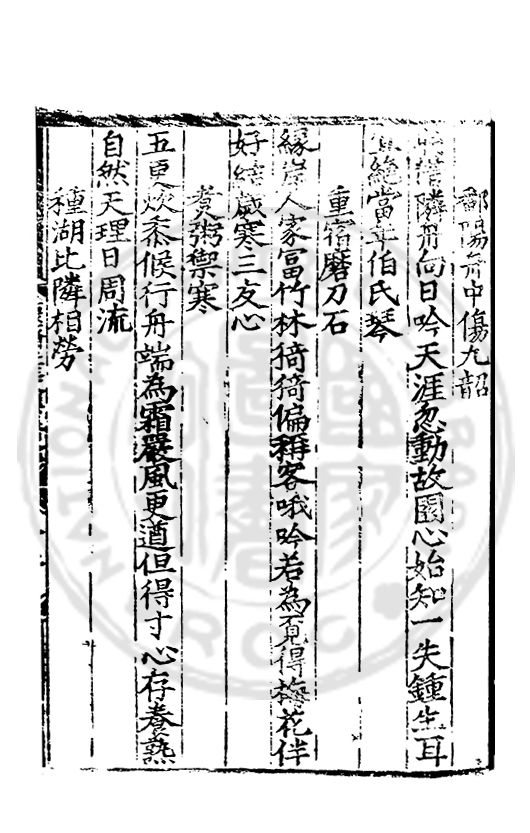 鄱陽舟中傷九韶
隣舟向日吟天涯忽動故園心始知一失鍾生耳
絶當年伯氏琴
重宿磨刀石
緣岸人家富竹林猗猗偏稱客哦吟若為覓得梅花伴
好結歲寒三友心
煮粥禦寒
五更炊黍候行舟端為霜嚴風更遒但得寸心存養熟
自然天理日周流
種湖比隣相勞